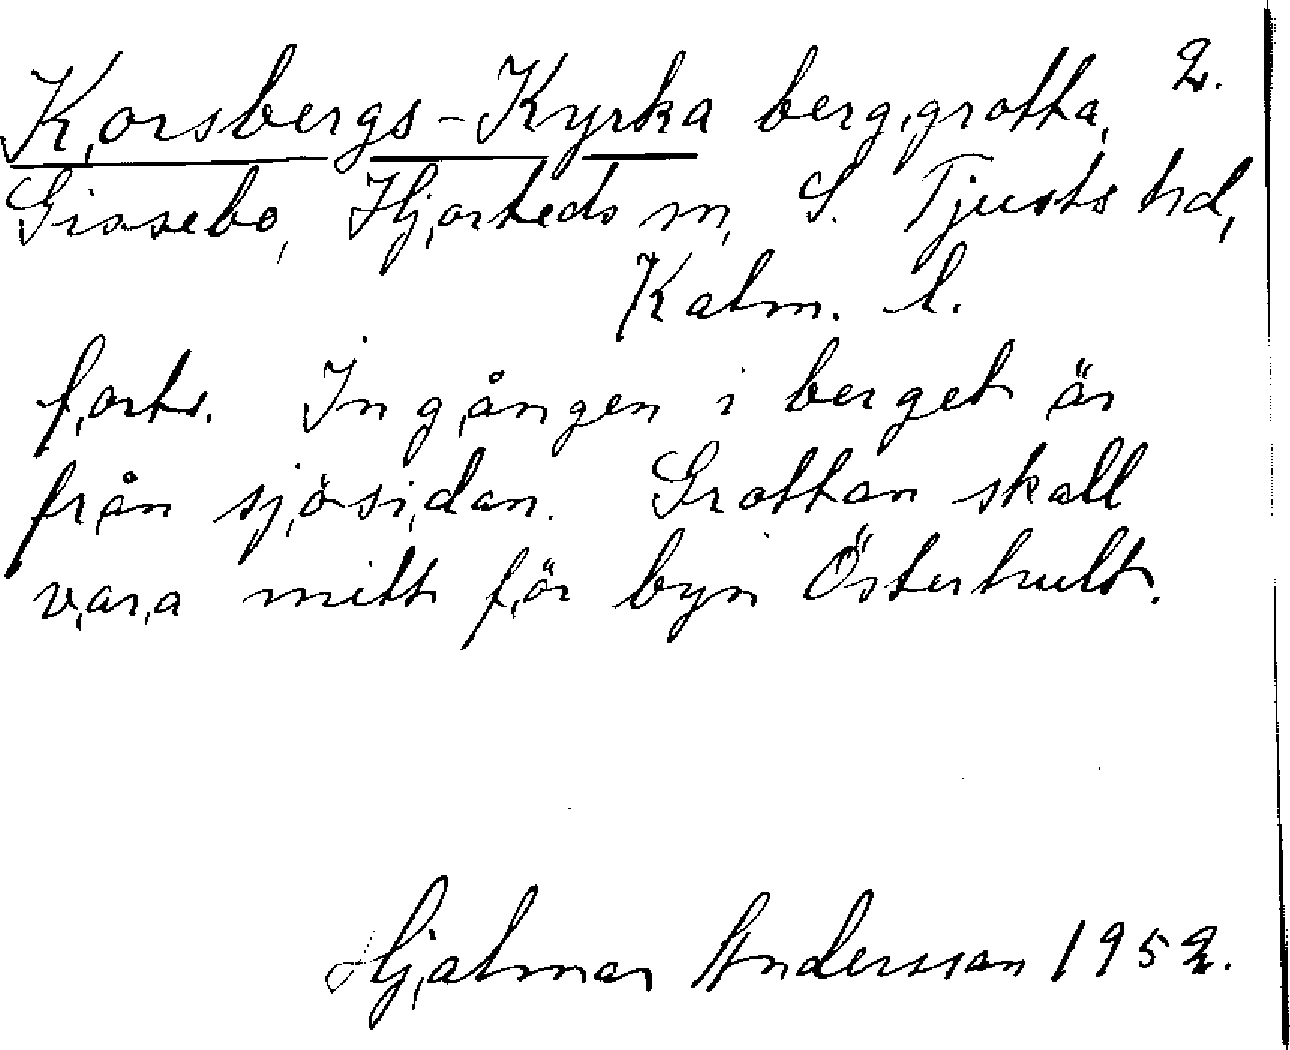 Korsbergs-Kyrka berggrotta, 2.
Gissebo, Hjorteds sn, S. Tjusts hd,
Kalm. l.
forts. Ingången i berget är
från sjösidan. Grottan skall
vara mitt för byn Österhult.
Hjalmar Andersson 1952.